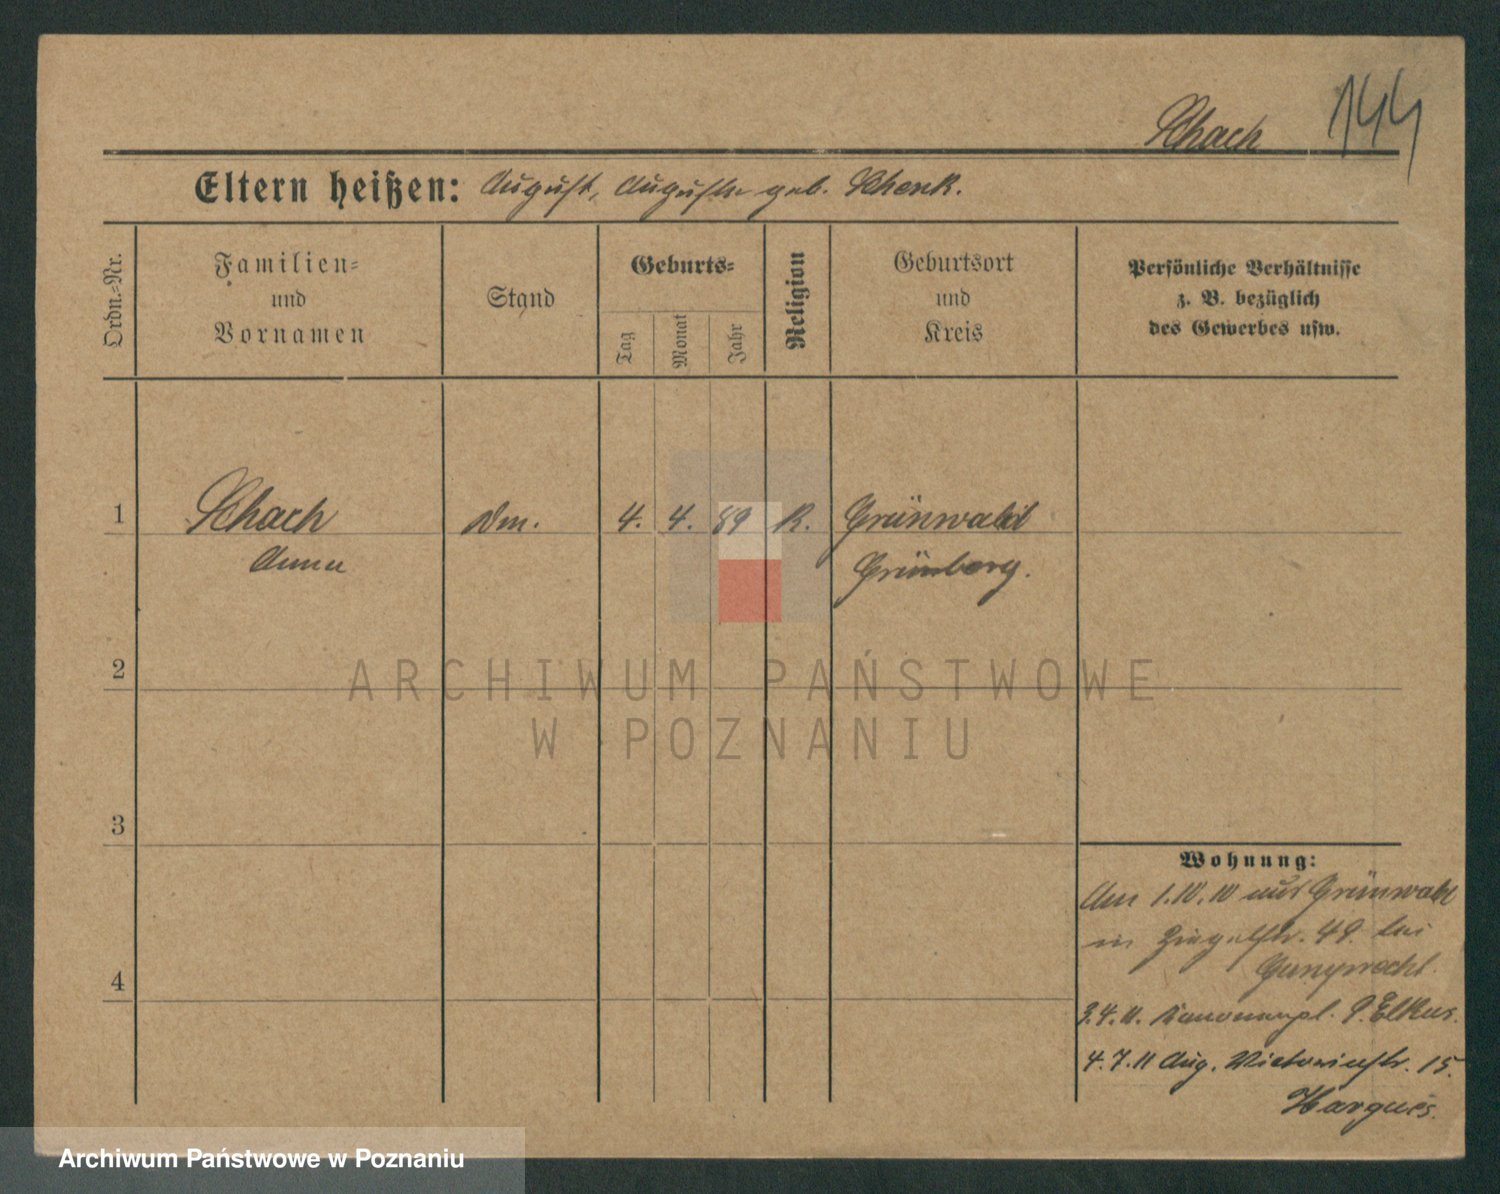 Schach 144
Eltern heißen: August, Auguste geb. Schenk.
Ordn.-Nr.
Familien-
und
Vornamen
Stand
Geburts-
Tag
Monat
Jahr
Religion
Geburtsort
und
Kreis
Persönliche Verhältnisse
z. B. bezüglich
des Gewerbes usw.
1 Schach Dm. 4. 4. 89 K. Grünwald
Anna Grünberg.
2
ARCHIWUM PAŃSTWOWE
W POZNANIU
3
Wohnung:
Am 1.10.10 aus Grünwald
in Ziegelstr. 49. bei
4
3.4.11. Kanonenpl. 9. Elkus.
4.7.11 Aug. Victoriastr. 15.
Archiwum Państwowe w Poznaniu